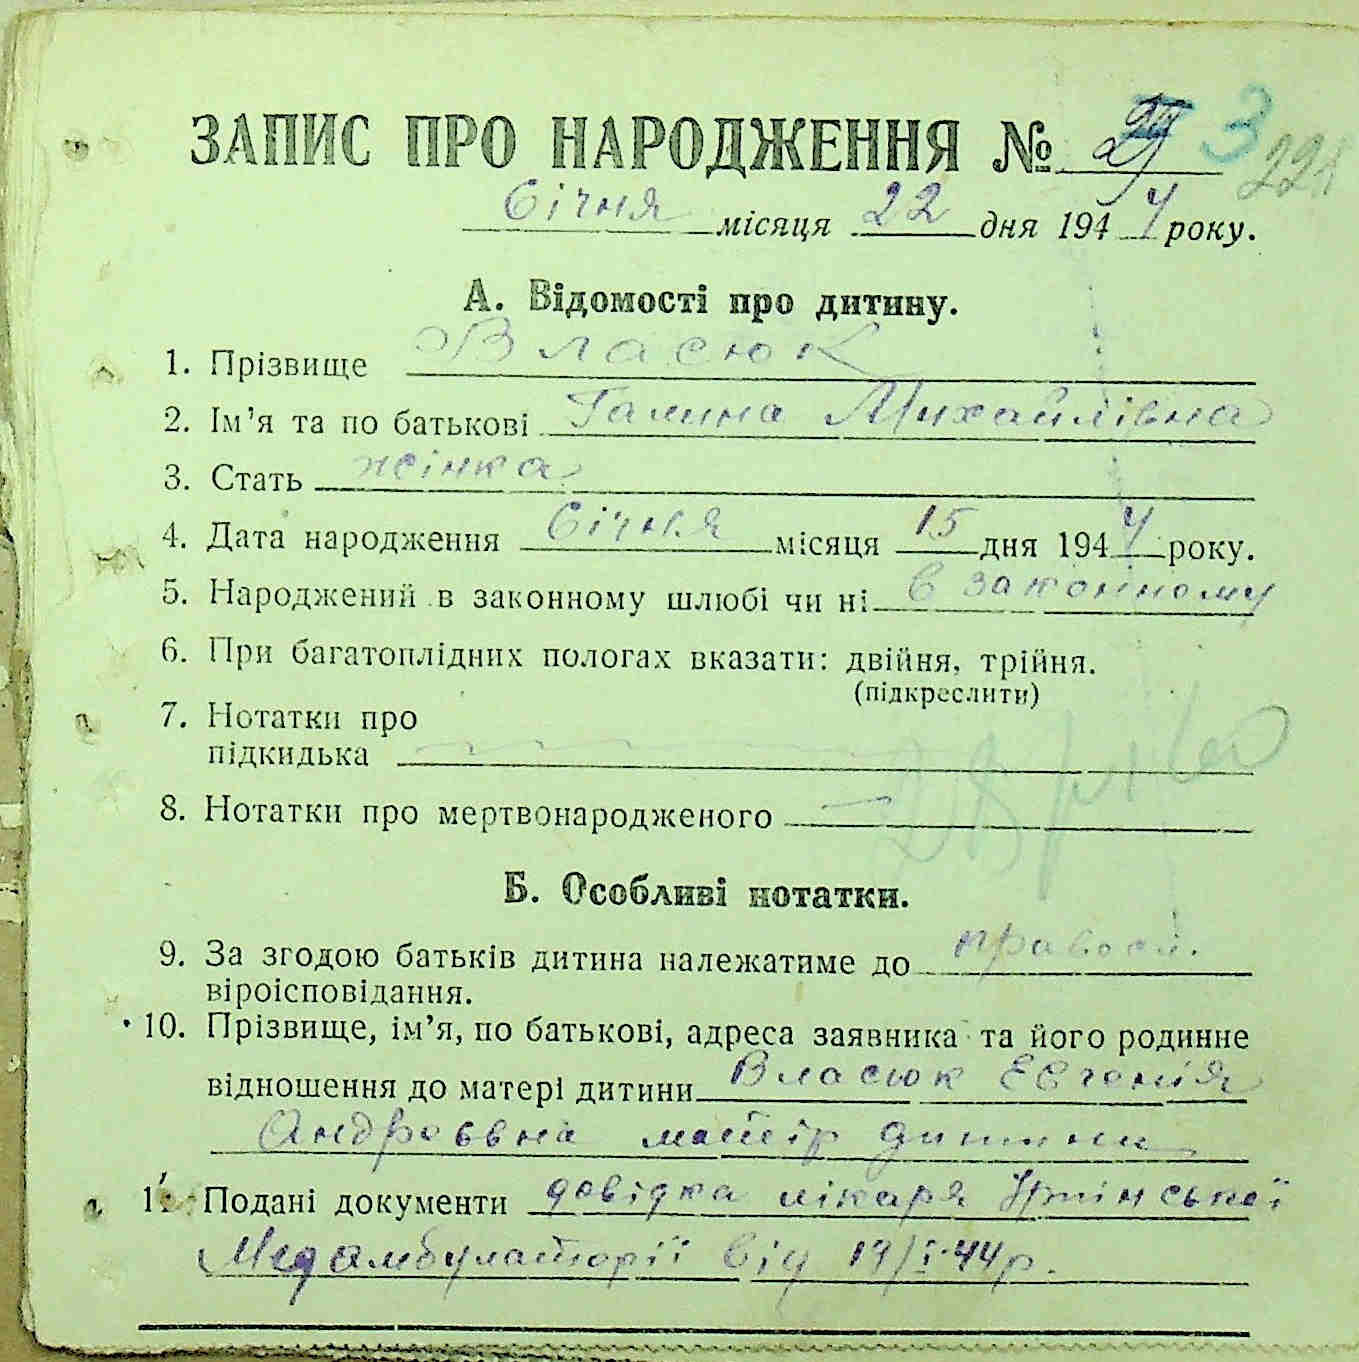 ЗАПИС ПРО НАРОДЖЕННЯ № 3 224
Січня місяця 22 дня 1944 року.
А. Відомості про дитину.
1. Прізвище Власюк
2. Ім'я та по батькові Галина Михайлівна
3. Стать жінка
4. Дата народження Січня місяця 15 дня 1944 року.
5. Народжений в законному шлюбі чи ні в законному
6. При багатоплідних пологах вказати: двійня, трійня.
(підкреслити)
7. Нотатки про
підкидька
8. Нотатки про мертвонародженого
Б. Особливі нотатки.
9. За згодою батьків дитина належатиме до правосл.
віроісповідання.
10. Прізвище, ім'я, по батькові, адреса заявника та його родинне
відношення до матері дитини Власюк Євгенія
Андреєвна матір дитини
11. Подані документи довідка лікаря
Медамбулаторії від 19/I-44р.